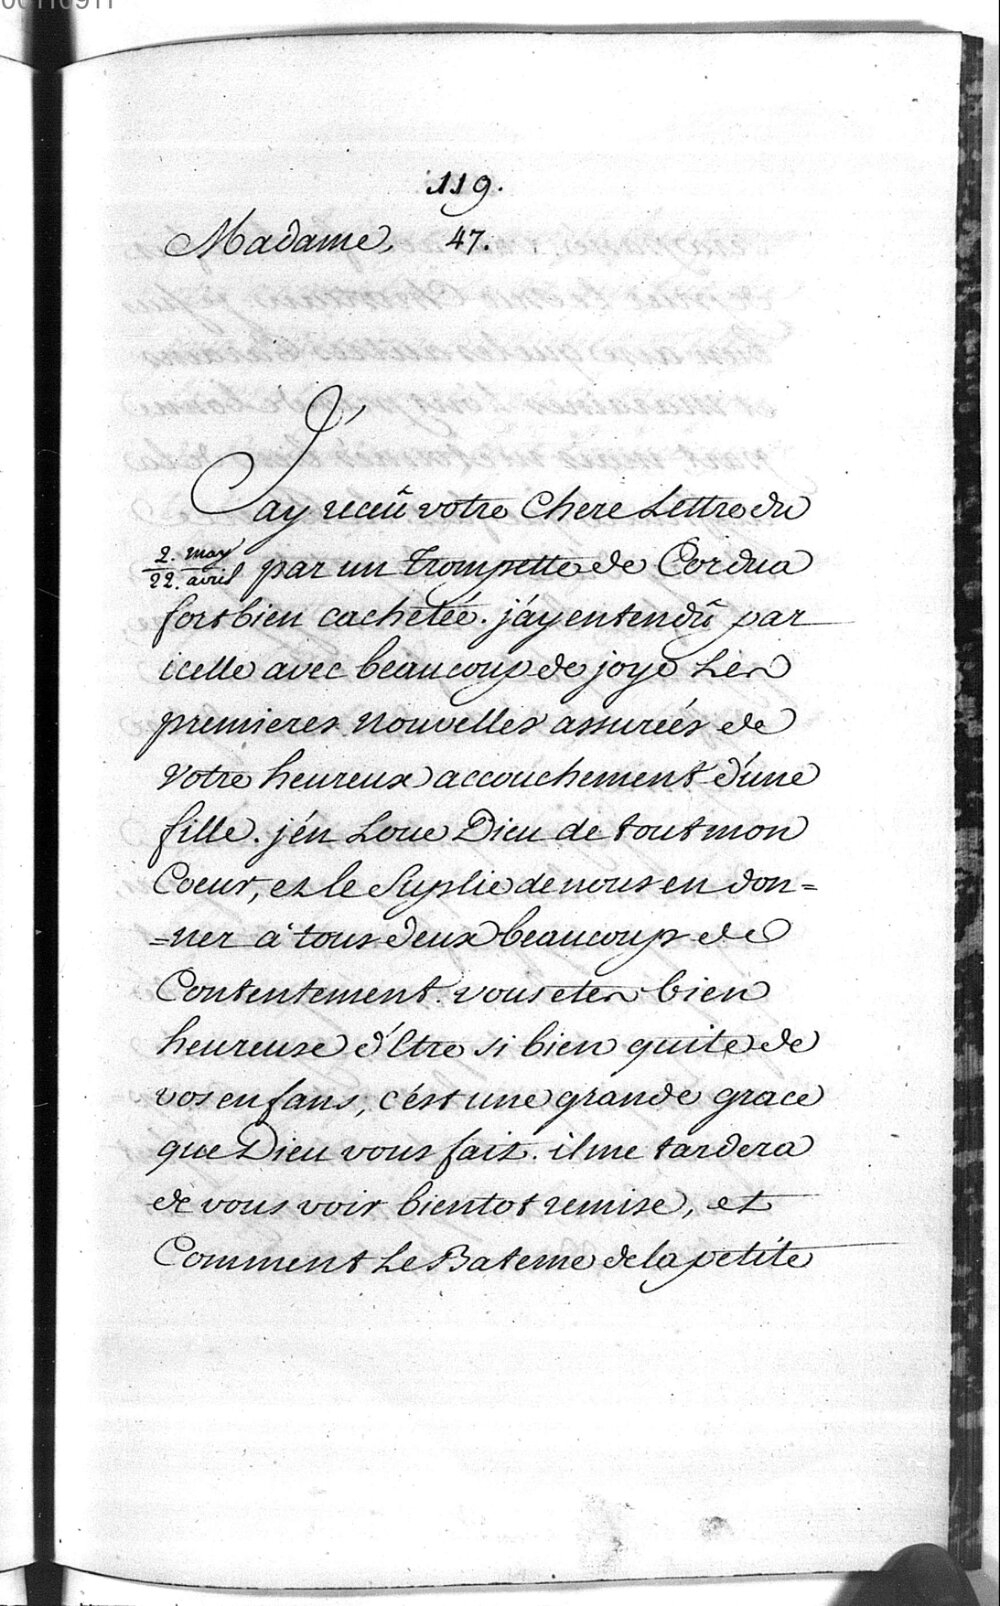 119.
Madame, 47.
J'ay receû votre Chere Lettre du
2. may
22. avril par un Trompette de Cordua
fort bien cachetée. j'ay entendû par
icelle avec beaucoup de joye Les
premieres nouvelles assureés de
Votre heureux accouchement d'une
fille. j'én Loue Dieu de tout mon
Coeur, et le Suplie de nous en don=
=ner à tous deux beaucoup de
Contentement. vous etes bien
heureuse d'Etre si bien quite de
vos enfans, c'ést une grande grace
que Dieu vous fait. il me tardera
de vous voir bientot remise, et
Comment Le Bateme de la petite